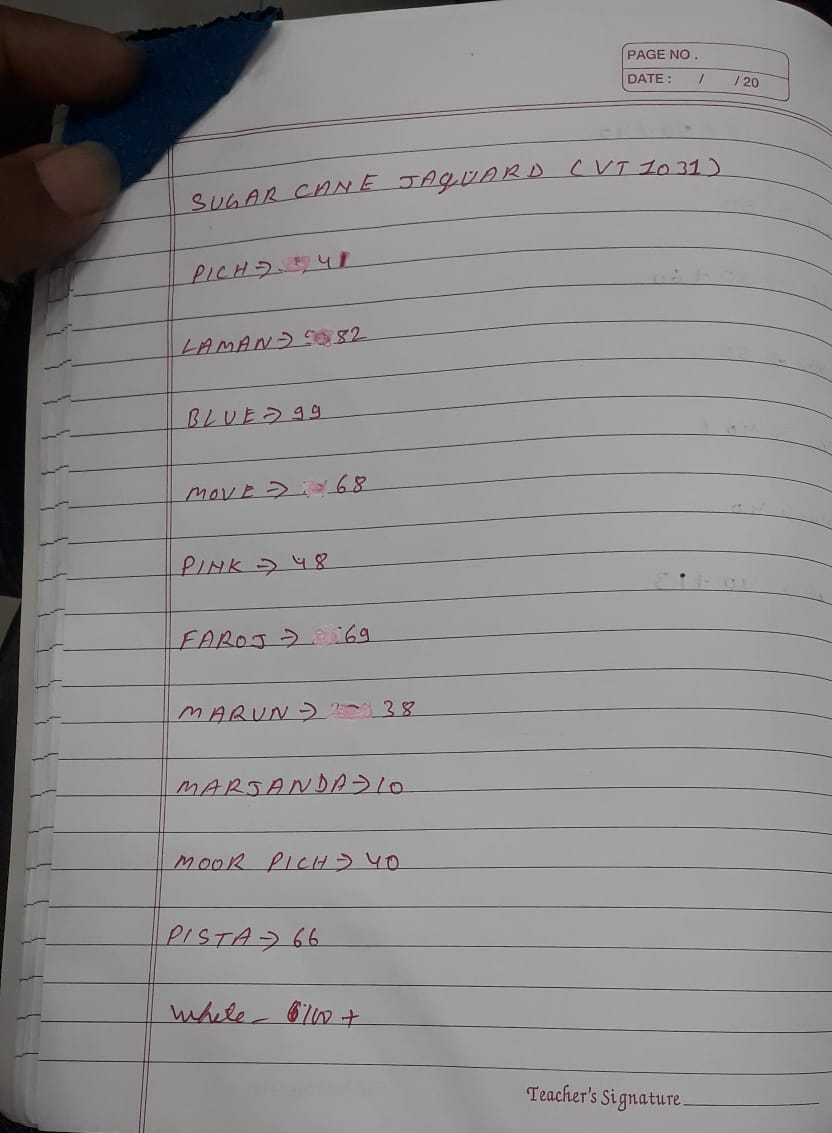 PAGE NO.
DATE: / /20
SUGAR CANE JAQUARD (VT 1031)
PICH⇒ 41
LAMAN⇒ 82
BLUE⇒ 99
MOVE⇒ 68
PINK⇒ 48
FAROJ⇒ 69
MARUN⇒ 38
MARJANDA⇒10
MOOR PICH⇒ 40
PISTA⇒ 66
White - 100 +
Teacher's Signature